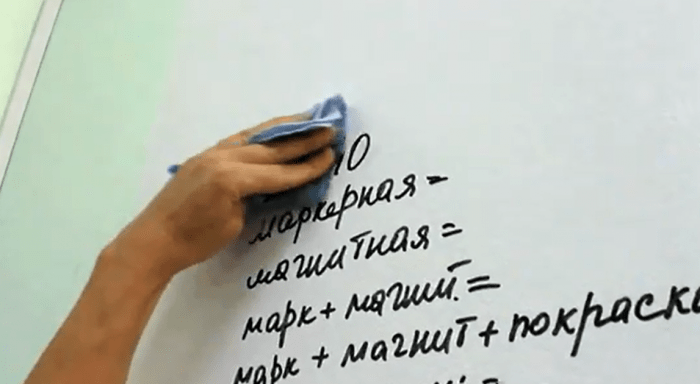 10
маркерная =
магнитная =
марк + магнит. =
марк + магнит + покраска